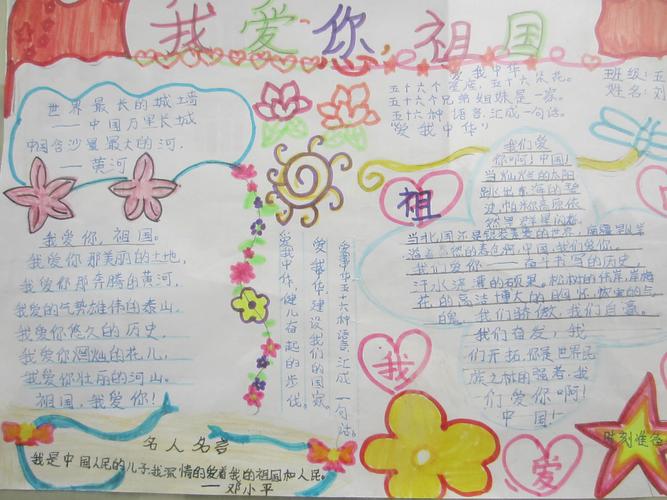 我爱你,祖国
班级:五
姓名:刘
世界最长的城墙
——中国万里长城
中国含沙量最大的河.
——黄河
爱我中华
五十六个星座,五十六朵花。
五十六个兄弟姐妹是一家。
五十六种语言,汇成一句话。
"爱我中华"
我爱你,祖国。
我爱你那美丽的土地,
我爱你那奔腾的黄河,
我爱的气势雄伟的泰山,
我爱你悠久的历史,
我爱你灿烂的花儿,
我爱你壮丽的河山。
祖国,我爱你!
爱我中华,健儿奋起的步伐。
爱我中华,建设我们的国家。
爱我中华五十六种语言汇成一句话。
祖
我
爱
我们爱
你啊!中国!
当灿烂的太阳
跳出东海的碧
我们爱你——奋斗书写的历史,
汗水浸灌的硕果。松树的伟岸,
我们奋发,我
们开拓,你是世界民
族之林的强者.我
们爱你啊!
中国!
名人名言
我是中国人民的儿子我深情的爱着我的祖国和人民。
——邓小平
时刻准备